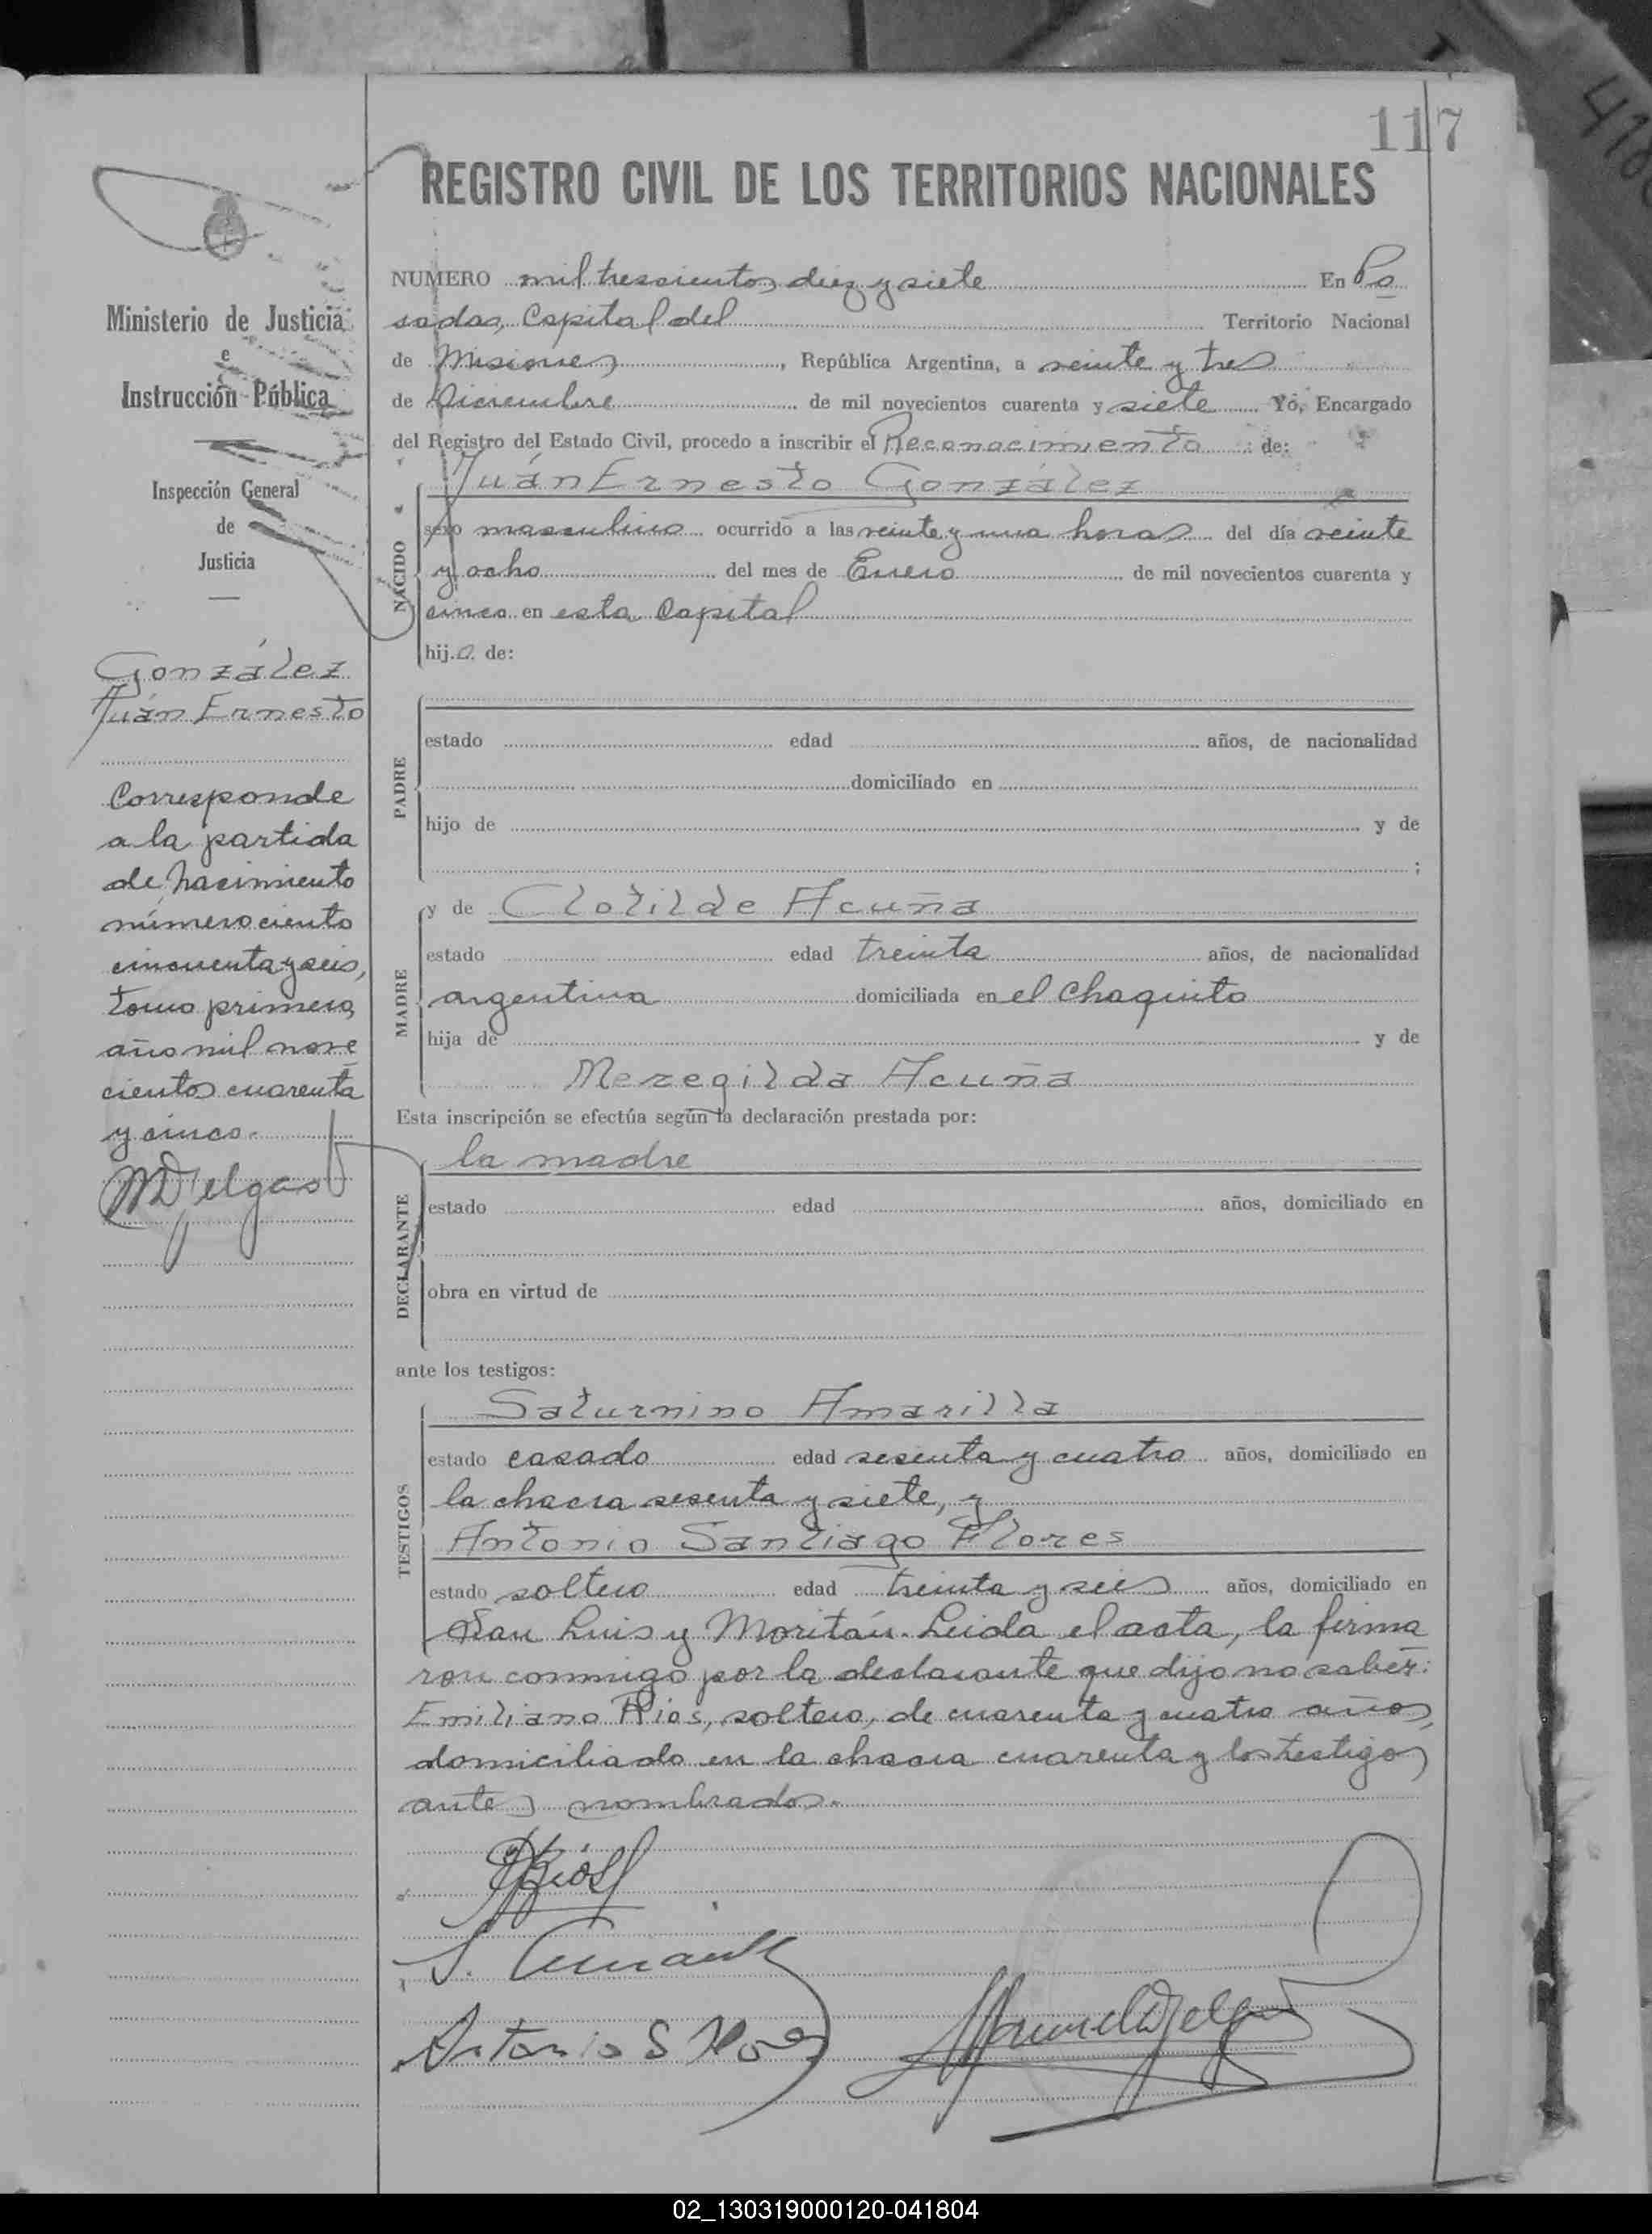 117
REGISTRO CIVIL DE LOS TERRITORIOS NACIONALES
Ministerio de Justicia
e
Instrucción Pública
Inspección General
de
Justicia
González
Juán Ernesto
Corresponde
a la partida
de nacimiento
número ciento
cincuenta y seis,
tomo primero,
año mil nove
cientos cuarenta
y cinco.
MDelgado
NUMERO mil trescientos diez y siete En Po
sadas, Capital del Territorio Nacional
de Misiones, República Argentina, a veinte y tres
de Diciembre de mil novecientos cuarenta y siete Yo, Encargado
del Registro del Estado Civil, procedo a inscribir el Reconocimiento de:
Juán Ernesto González
NACIDO
sexo masculino ocurrido a las veinte y una horas del día veinte
y ocho del mes de Enero de mil novecientos cuarenta y
cinco en esta Capital
hijo de:
PADRE
estado edad años, de nacionalidad
domiciliado en
hijo de y de
;
MADRE
y de Clotilde Acuña
estado edad treinta años, de nacionalidad
argentina domiciliada en el Chaquito
hija de y de
Meregilda Acuña
Esta inscripción se efectúa según la declaración prestada por:
DECLARANTE
la madre
estado edad años, domiciliado en
obra en virtud de
ante los testigos:
TESTIGOS
Saturnino Amarilla
estado casado edad sesenta y cuatro años, domiciliado en
la chacra sesenta y siete, y
Antonio Santiago Flores
estado soltero edad treinta y seis años, domiciliado en
San Luis y Moritán. Leida el acta, la firma
ron conmigo por la declarante que dijo no saber:
Emiliano Rios, soltero, de cuarenta y cuatro años,
domiciliado en la chacra cuarenta y los testigos
antes nombrados.
Rios
S.
Antonio S Flores
Manuel Delgado
02_130319000120-041804